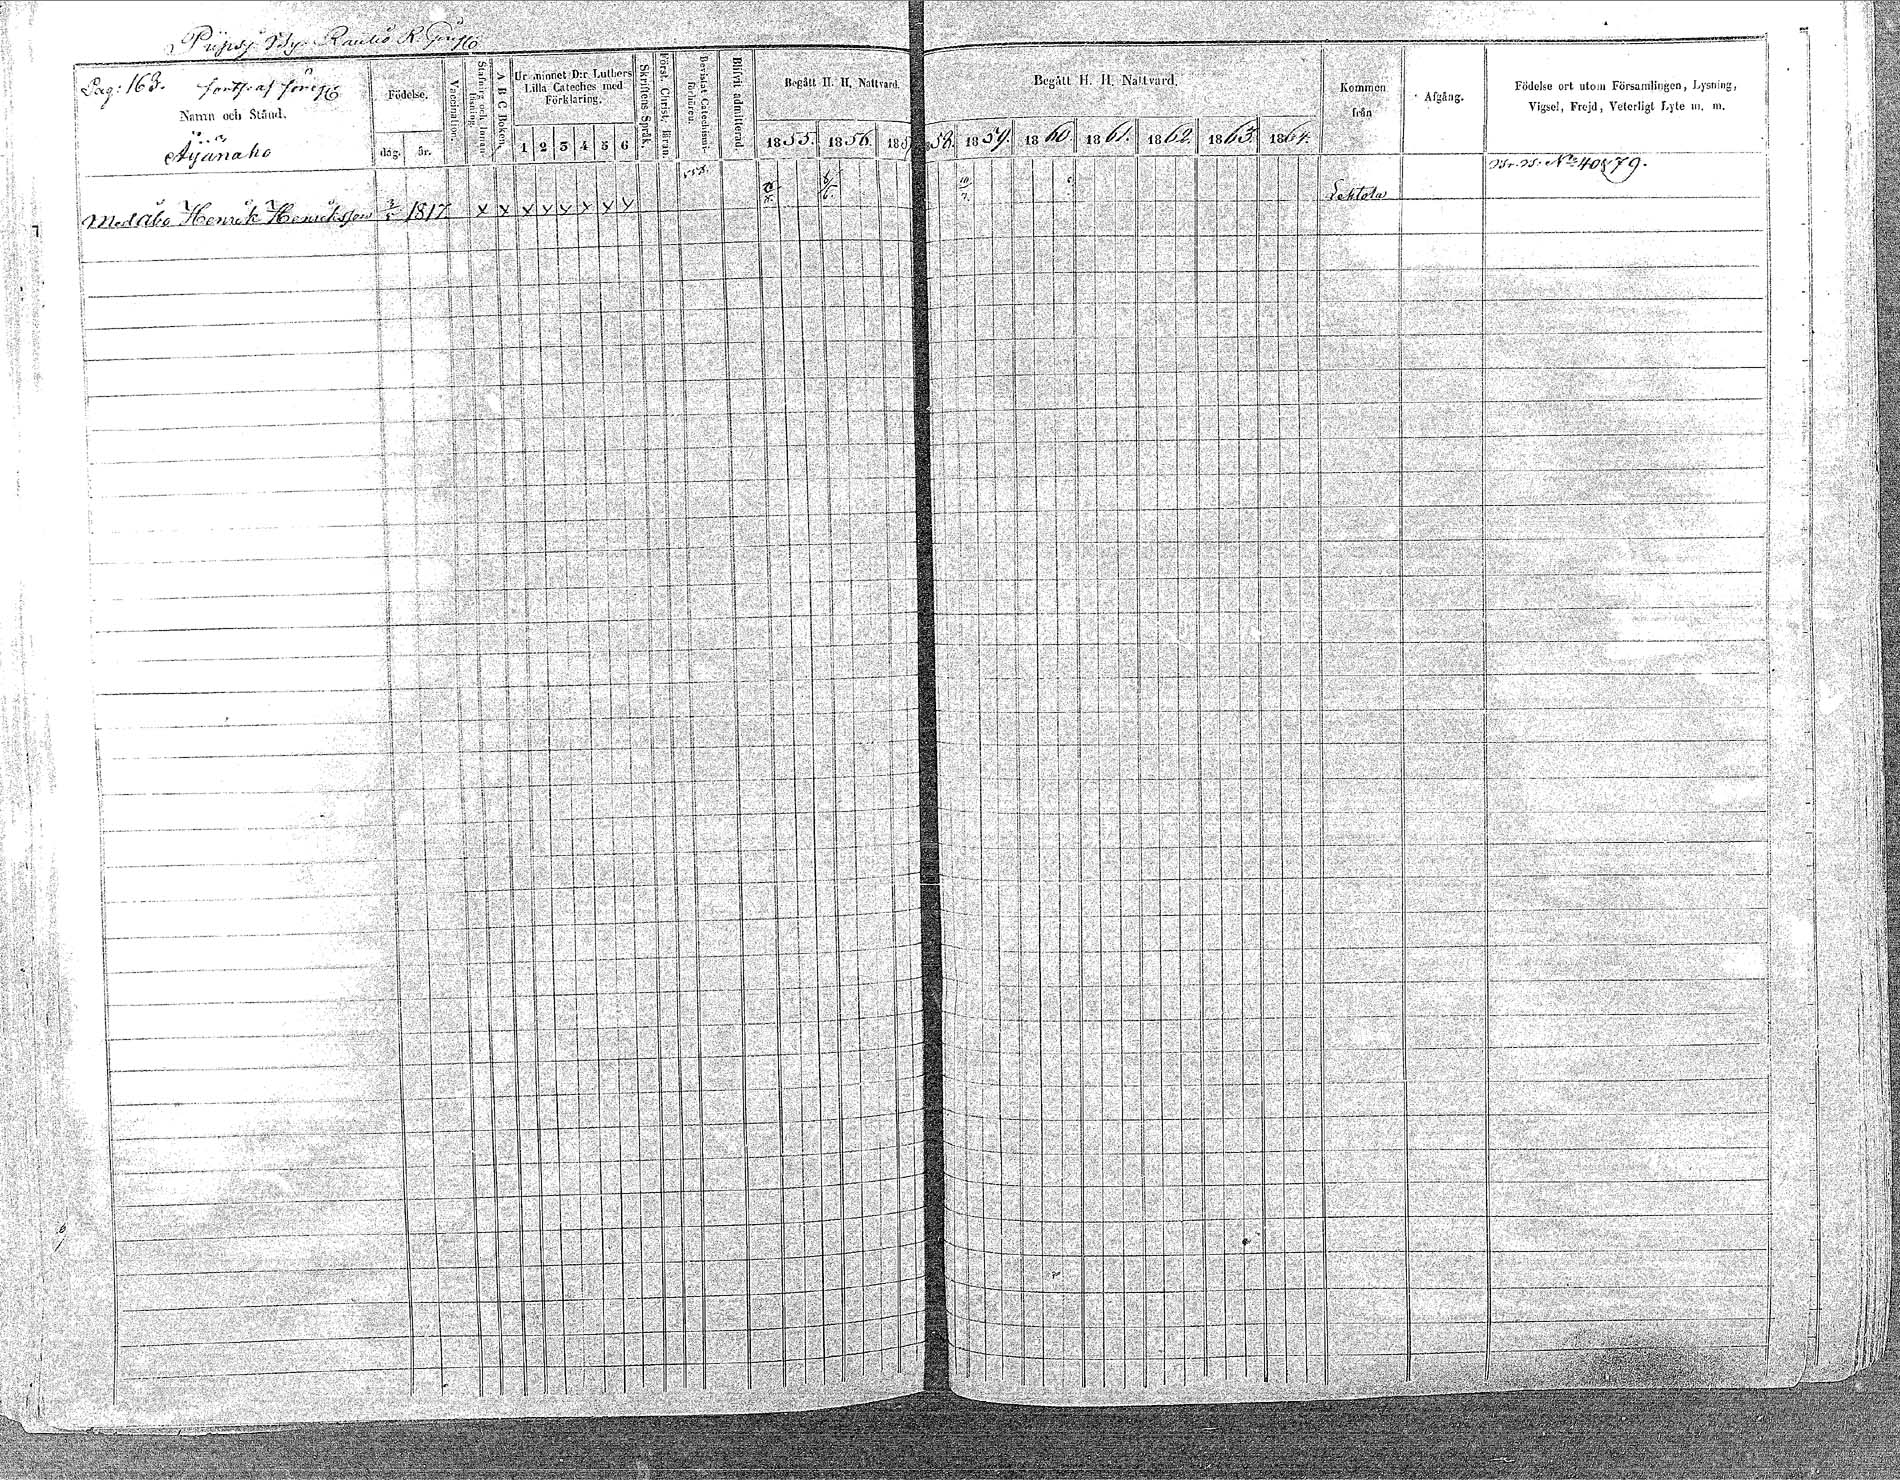 Pag: 163. forts. af före
Namn och Stånd.
Äijänaho
Födelse.
dag. år.
Vaccination.
Stafning och Innanläsning.
A B C Boken.
Ur minnet D:r Luthers
Lilla Cateches med
Förklaring.
1 2 3 4 5 6
Skriftens Språk.
Först. Christ. läran
Bevistat Catechismi-
förhören.
Blifvit admitterad
Begått H. H. Nattvard.
1855. 1856. 185
Begått H. H. Nattvard.
58. 1859. 1860 1861. 1862. 1863. 1864.
Kommen
från
Afgång.
Födelse ort utom Församlingen, Lysning,
Vigsel, Frejd, Veterligt Lyte m. m.
N:o 40879.
Medåbo Henrik Henriksson 1817 x x x x x x x x
Lehtola